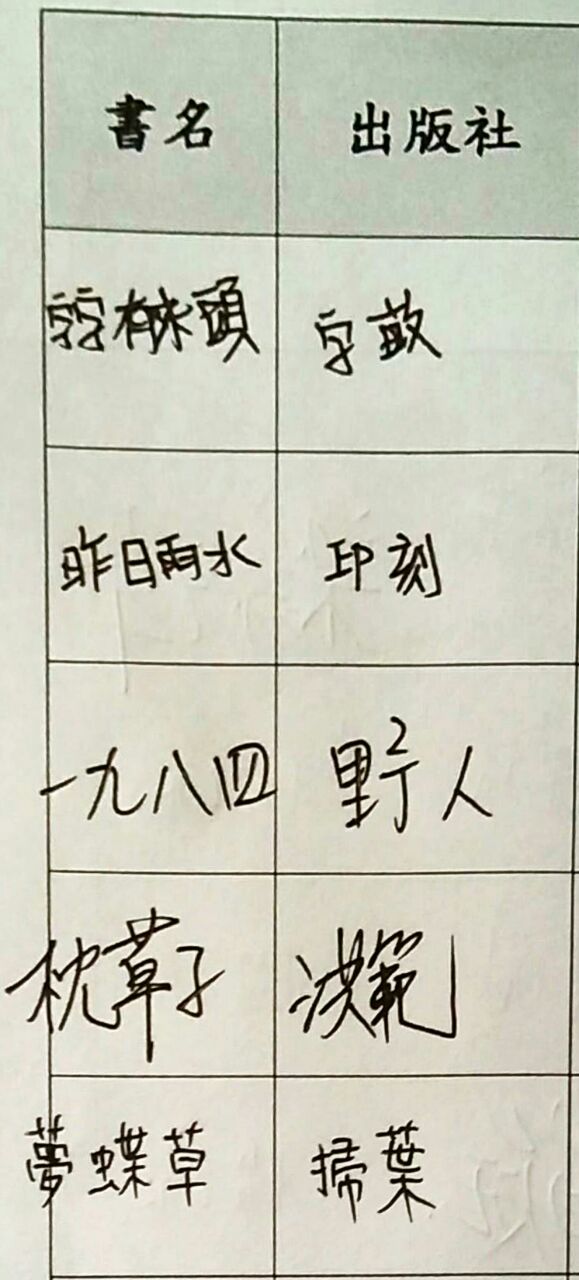 書名 出版社
字字有來頭 字畝
昨日雨水 印刻
一九八四 野人
枕草子 洪範
夢蝶草 掃葉